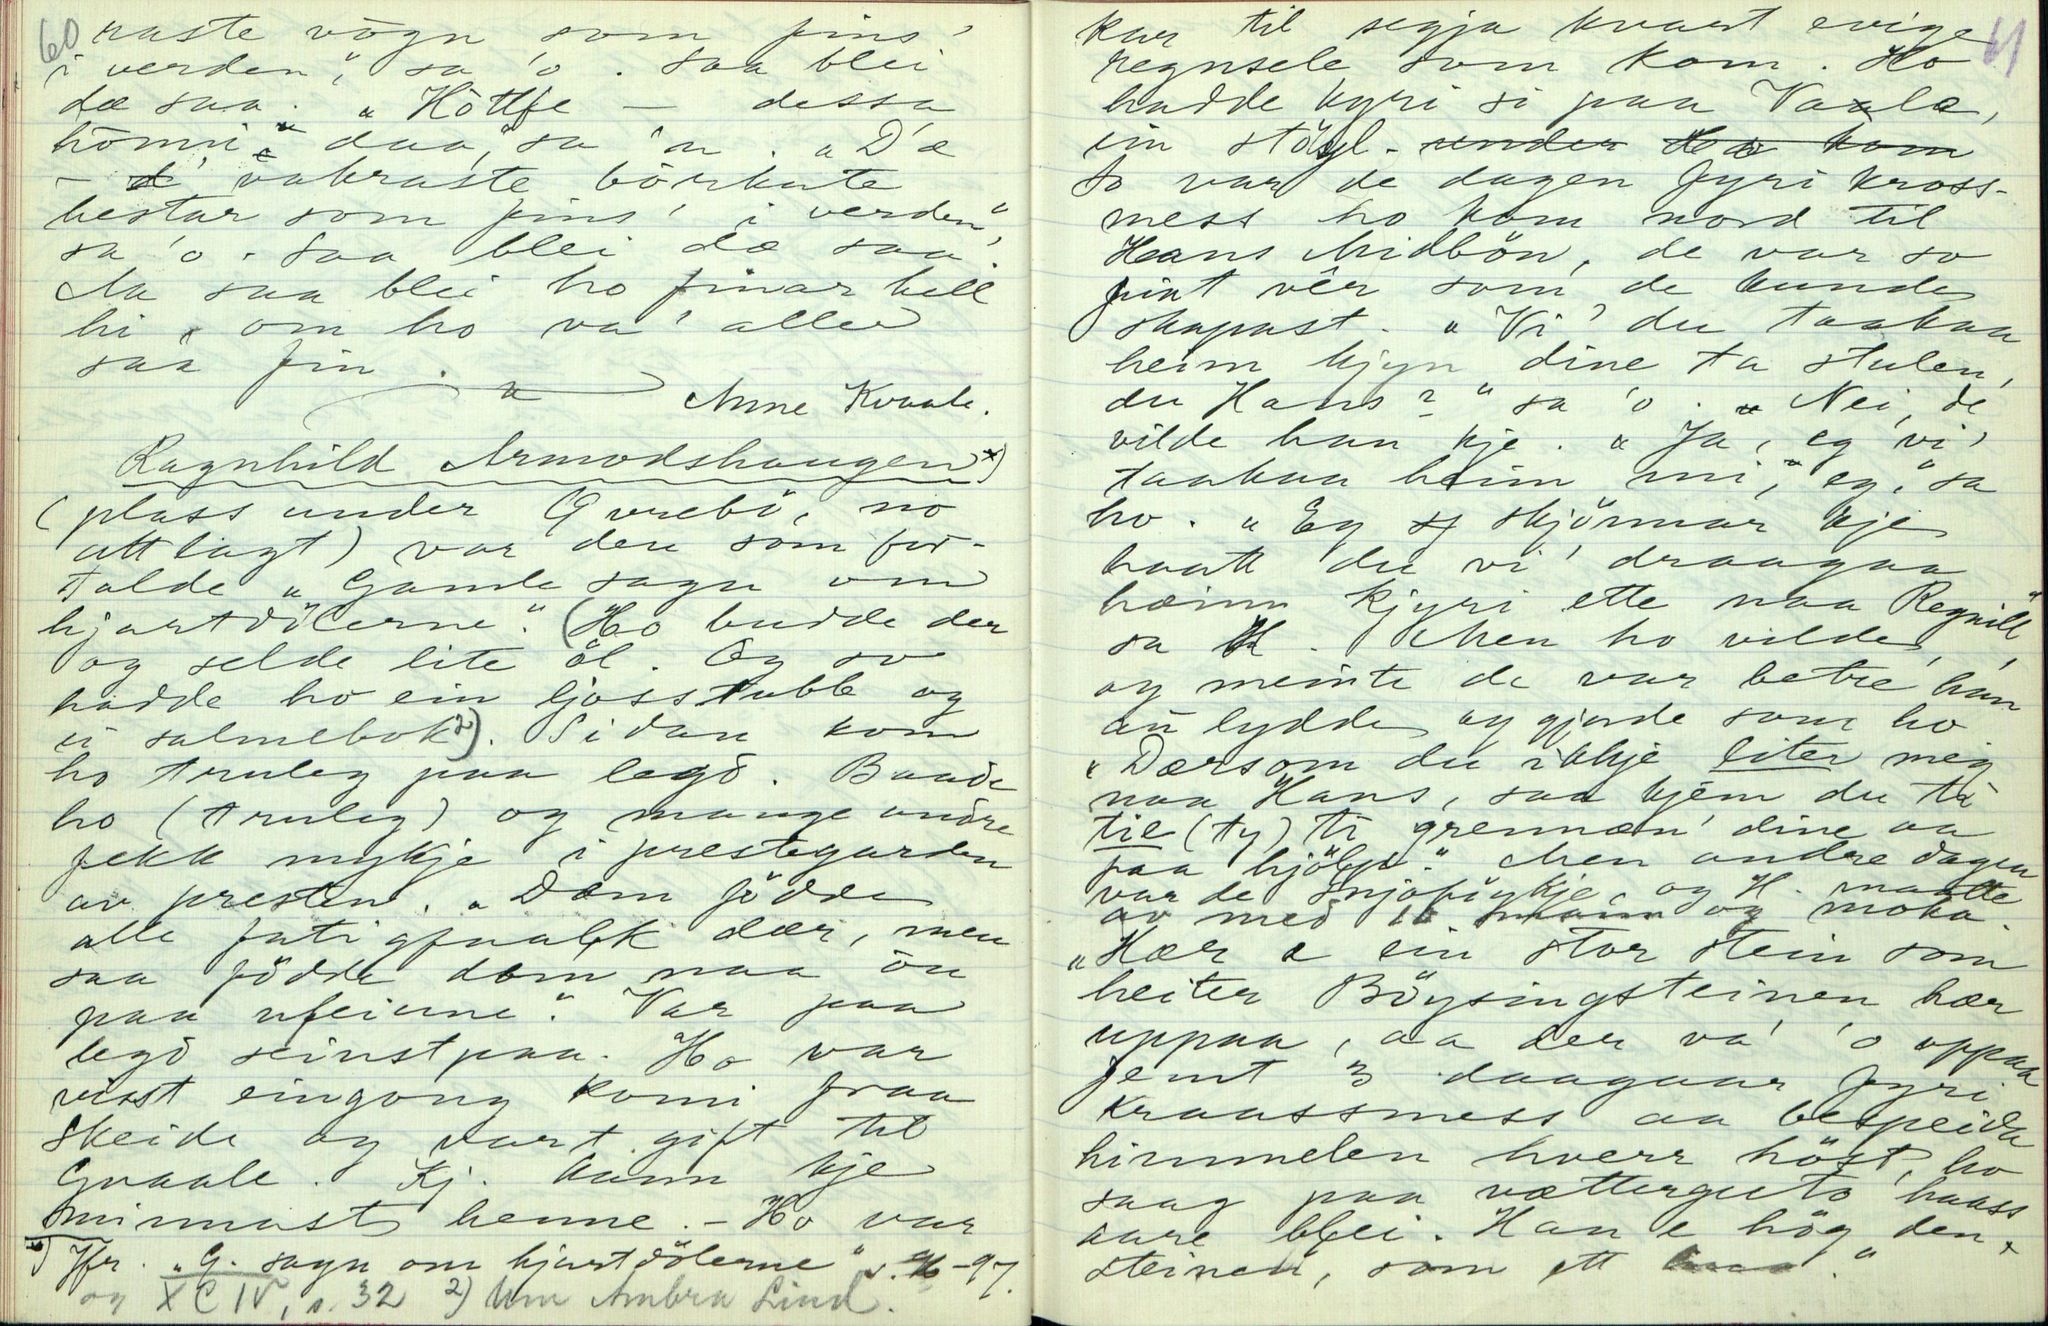 60
raste vogn som fins'
i verden", sa 'o. Saa blei
dæ saa. "Höttfe — dessa
hömni daa," sa 'n. "D'æ
— d' vakraste börkute
hestar som fins' i verden",
sa 'o. Saa blei dæ saa.
Aa saa blei ho finar hell
hi, om ho va' aller
saa fin.
Anne Kvaale.
Ragnhild Armodshaugen x)
(plass under Gvrebö, no
attlagt) var den som for-
talde "Gamle sagn om
hjartdölerne". (Ho budde der
og selde lite öl. Og so
hadde ho ein ljosstubb og
ei salmebok 2). Sidan kom
ho truleg paa legd. Baade
ho (truleg) og mange andre
fekk mykje i prestegarden
av presten. "Dæm födde
alle fatigfaalk dær, men
saa födde dæm naa ôu
paa ufeiene". Var paa
legd seinstpaa. Ho var
visst eingong komi fraa
Skeide og vart gift til
Gvaale. Kj. kann kje
minnast henne. — Ho var
x) Jfr. "G. sagn om hjartdölerne" s. -97.
og XCIV, s. 32 2) Um Ambra Lind.
61
kar til segja kvart evige
regnsele som kom. Ho
hadde kyri si paa Vaala,
ein stöyl. under Ho kom
So var de dagen fyri kross-
mess ho kom nord til
Hans Midbön, de var so
fint vêr som de kunde
skapast. "Vi' du taakaa
heim kjyn dine ta stulen,
du Hans?" sa 'o. "Nei, de
vilde han kje. "Ja, eg vi'
taakaa heim mi, eg," sa
ho. "Eg skjönnar kje
haatt du vi' draagaa
hæim kjyri ette naa Regnill",
sa H. Men ho vilde,
og meinte de var betre han
au lydde og gjorde som ho
"Dærsom du ikkje liter meg
naa Hans, saa kjem du tê
til (ty) ti grennæn' dine aa
faa hjölp." Men andre dagen
var de snjofigkje, og H. maatte
av med og moka.
"Hær e ein stor stein som
heiter Böysingsteinen hær
uppaa, aa der va' 'o oppaa
femt 3 daagaar fyri
kraassmess aa bespeida
himmelen hverr höst, ho
saag paa vætterguto haass
aare blei. Han e hög den
steinen, som ett ."